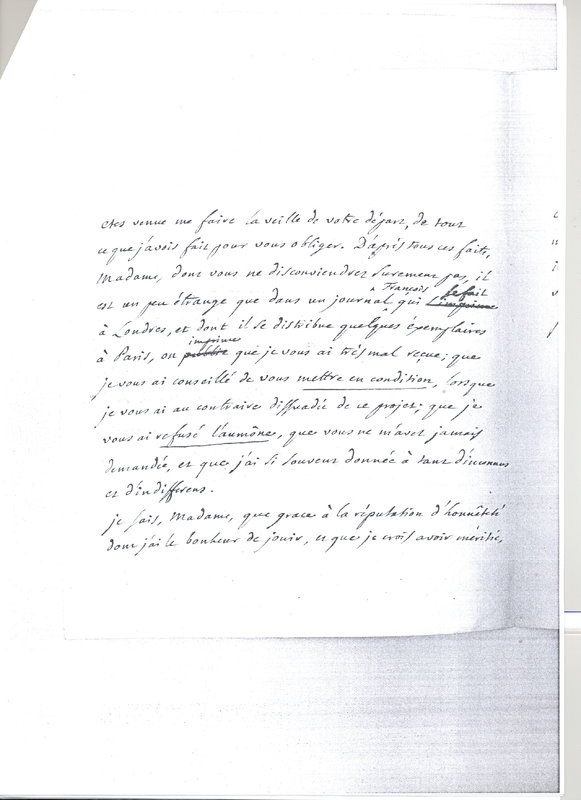 etes venue me faire la veille de votre départ, de tout
ce que j'avois fait pour vous obliger. D'après tous ces faits,
Madame, dont vous ne disconviendrez surement pas, il
est un peu étrange que dans un journal ^ François qui l'imprime se fait
à Londres, et dont il se distribue quelques éxemplaires
à Paris, on publie imprime que je vous ai très mal recue; que
je vous ai conseillé de vous mettre en condition, lorsque
je vous ai au contraire dissuadée de ce projet; que je
vous ai refusé l'aumône, que vous ne m'avez jamais
demandée, et que j'ai si souvent donnée à tant d'inconnus
et d'indifferens.
je sais, Madame, que grace à la réputation d'honnêteté
dont j'ai le bonheur de jouir, et que je crois avoir méritée,